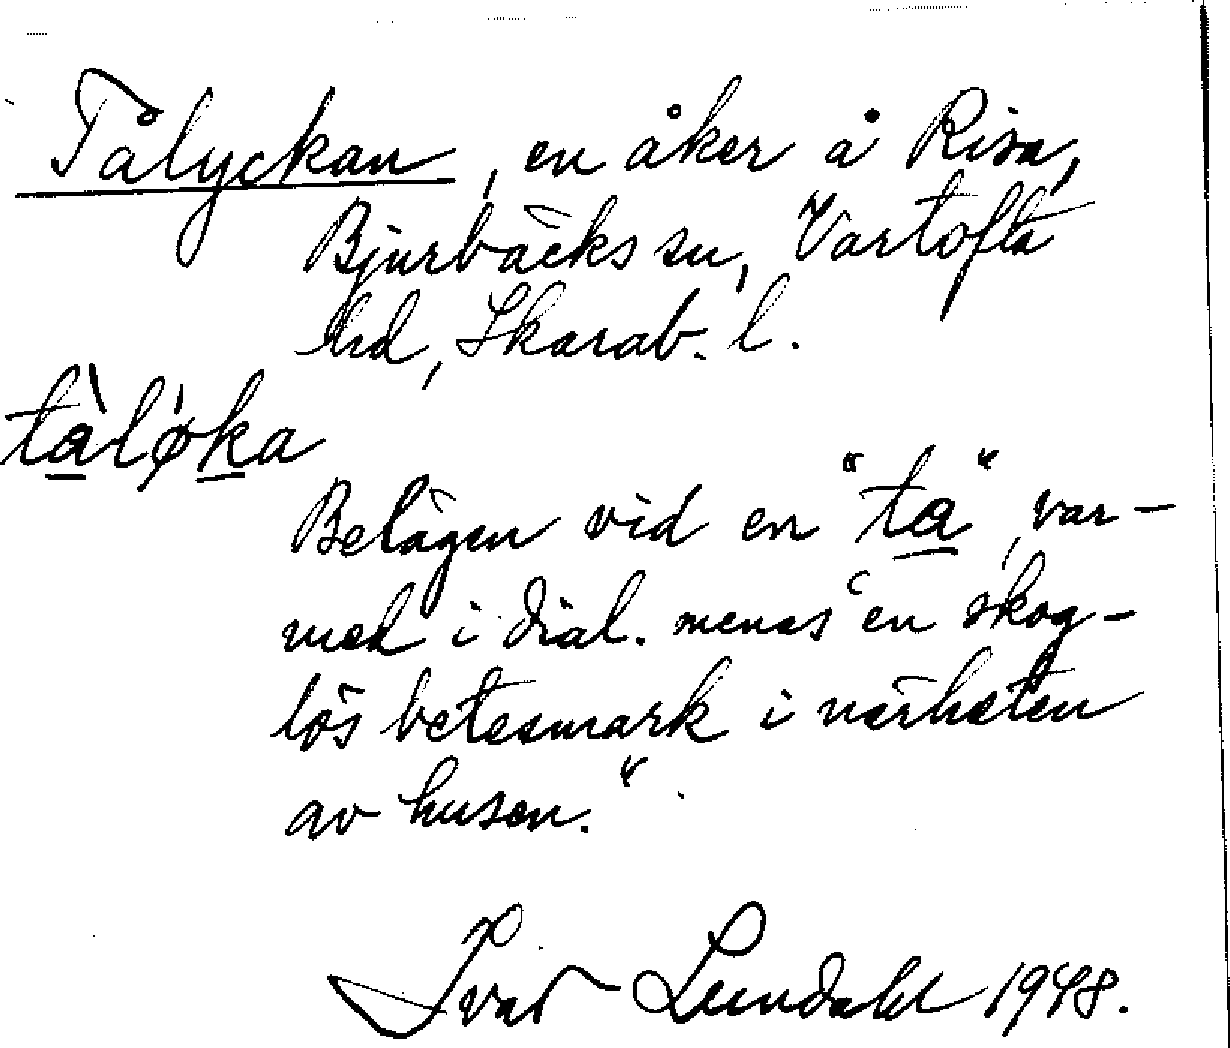 Tålyckan, en åker å Risa,
Bjurbäcks sn, Vartofta
hd, Skarab. l.
tàlǿka
Belägen vid en "ta", var-
med i dial. menas "en skog-
lös betesmark i närheten
av husen."
Ivar Lundahl 1948.